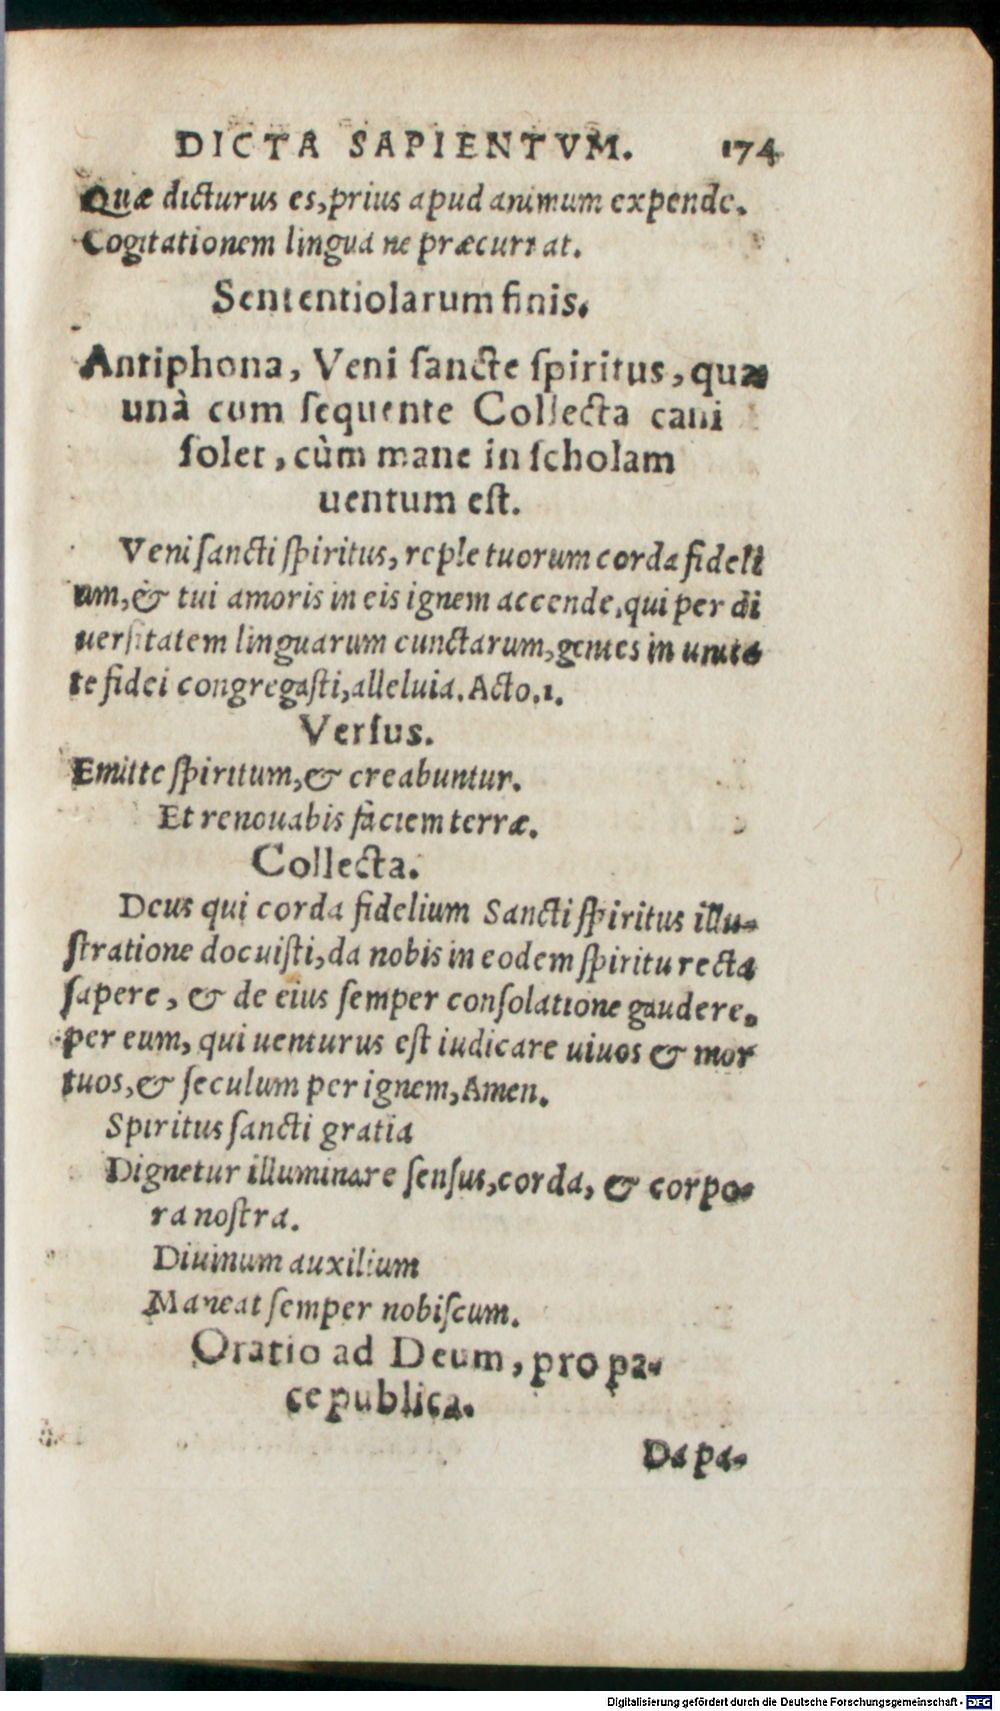 DICTA SAPIENTVM. 174
Quæ dicturus es, prius apud animum expende.
Cogitationem lingua ne præcurrat.
Sententiolarum finis.
Antiphona, Veni sancte spiritus, quæ
unà cum sequente Collecta cani
solet, cùm mane in scholam
uentum est.
Veni sancti spiritus, reple tuorum corda fideli
um, & tui amoris in eis ignem accende, qui per di
uersitatem linguarum cunctarum, gentes in unita
te fidei congregasti, alleluia. Acto. 1.
Versus.
Emitte spiritum, & creabuntur.
Et renouabis faciem terræ.
Collecta.
Deus qui corda fidelium Sancti spiritus illu-
stratione docuisti, da nobis in eodem spiritu recta
sapere, & de eius semper consolatione gaudere,
per eum, qui uenturus est iudicare uiuos & mor
tuos, & seculum per ignem, Amen.
Spiritus sancti gratia
Dignetur illuminare sensus, corda, & corpo-
ra nostra.
Diuinum auxilium
Maneat semper nobiscum.
Oratio ad Deum, pro pa-
ce publica.
Da pa-
Digitalisierung gefördert durch die Deutsche Forschungsgemeinschaft - DFG